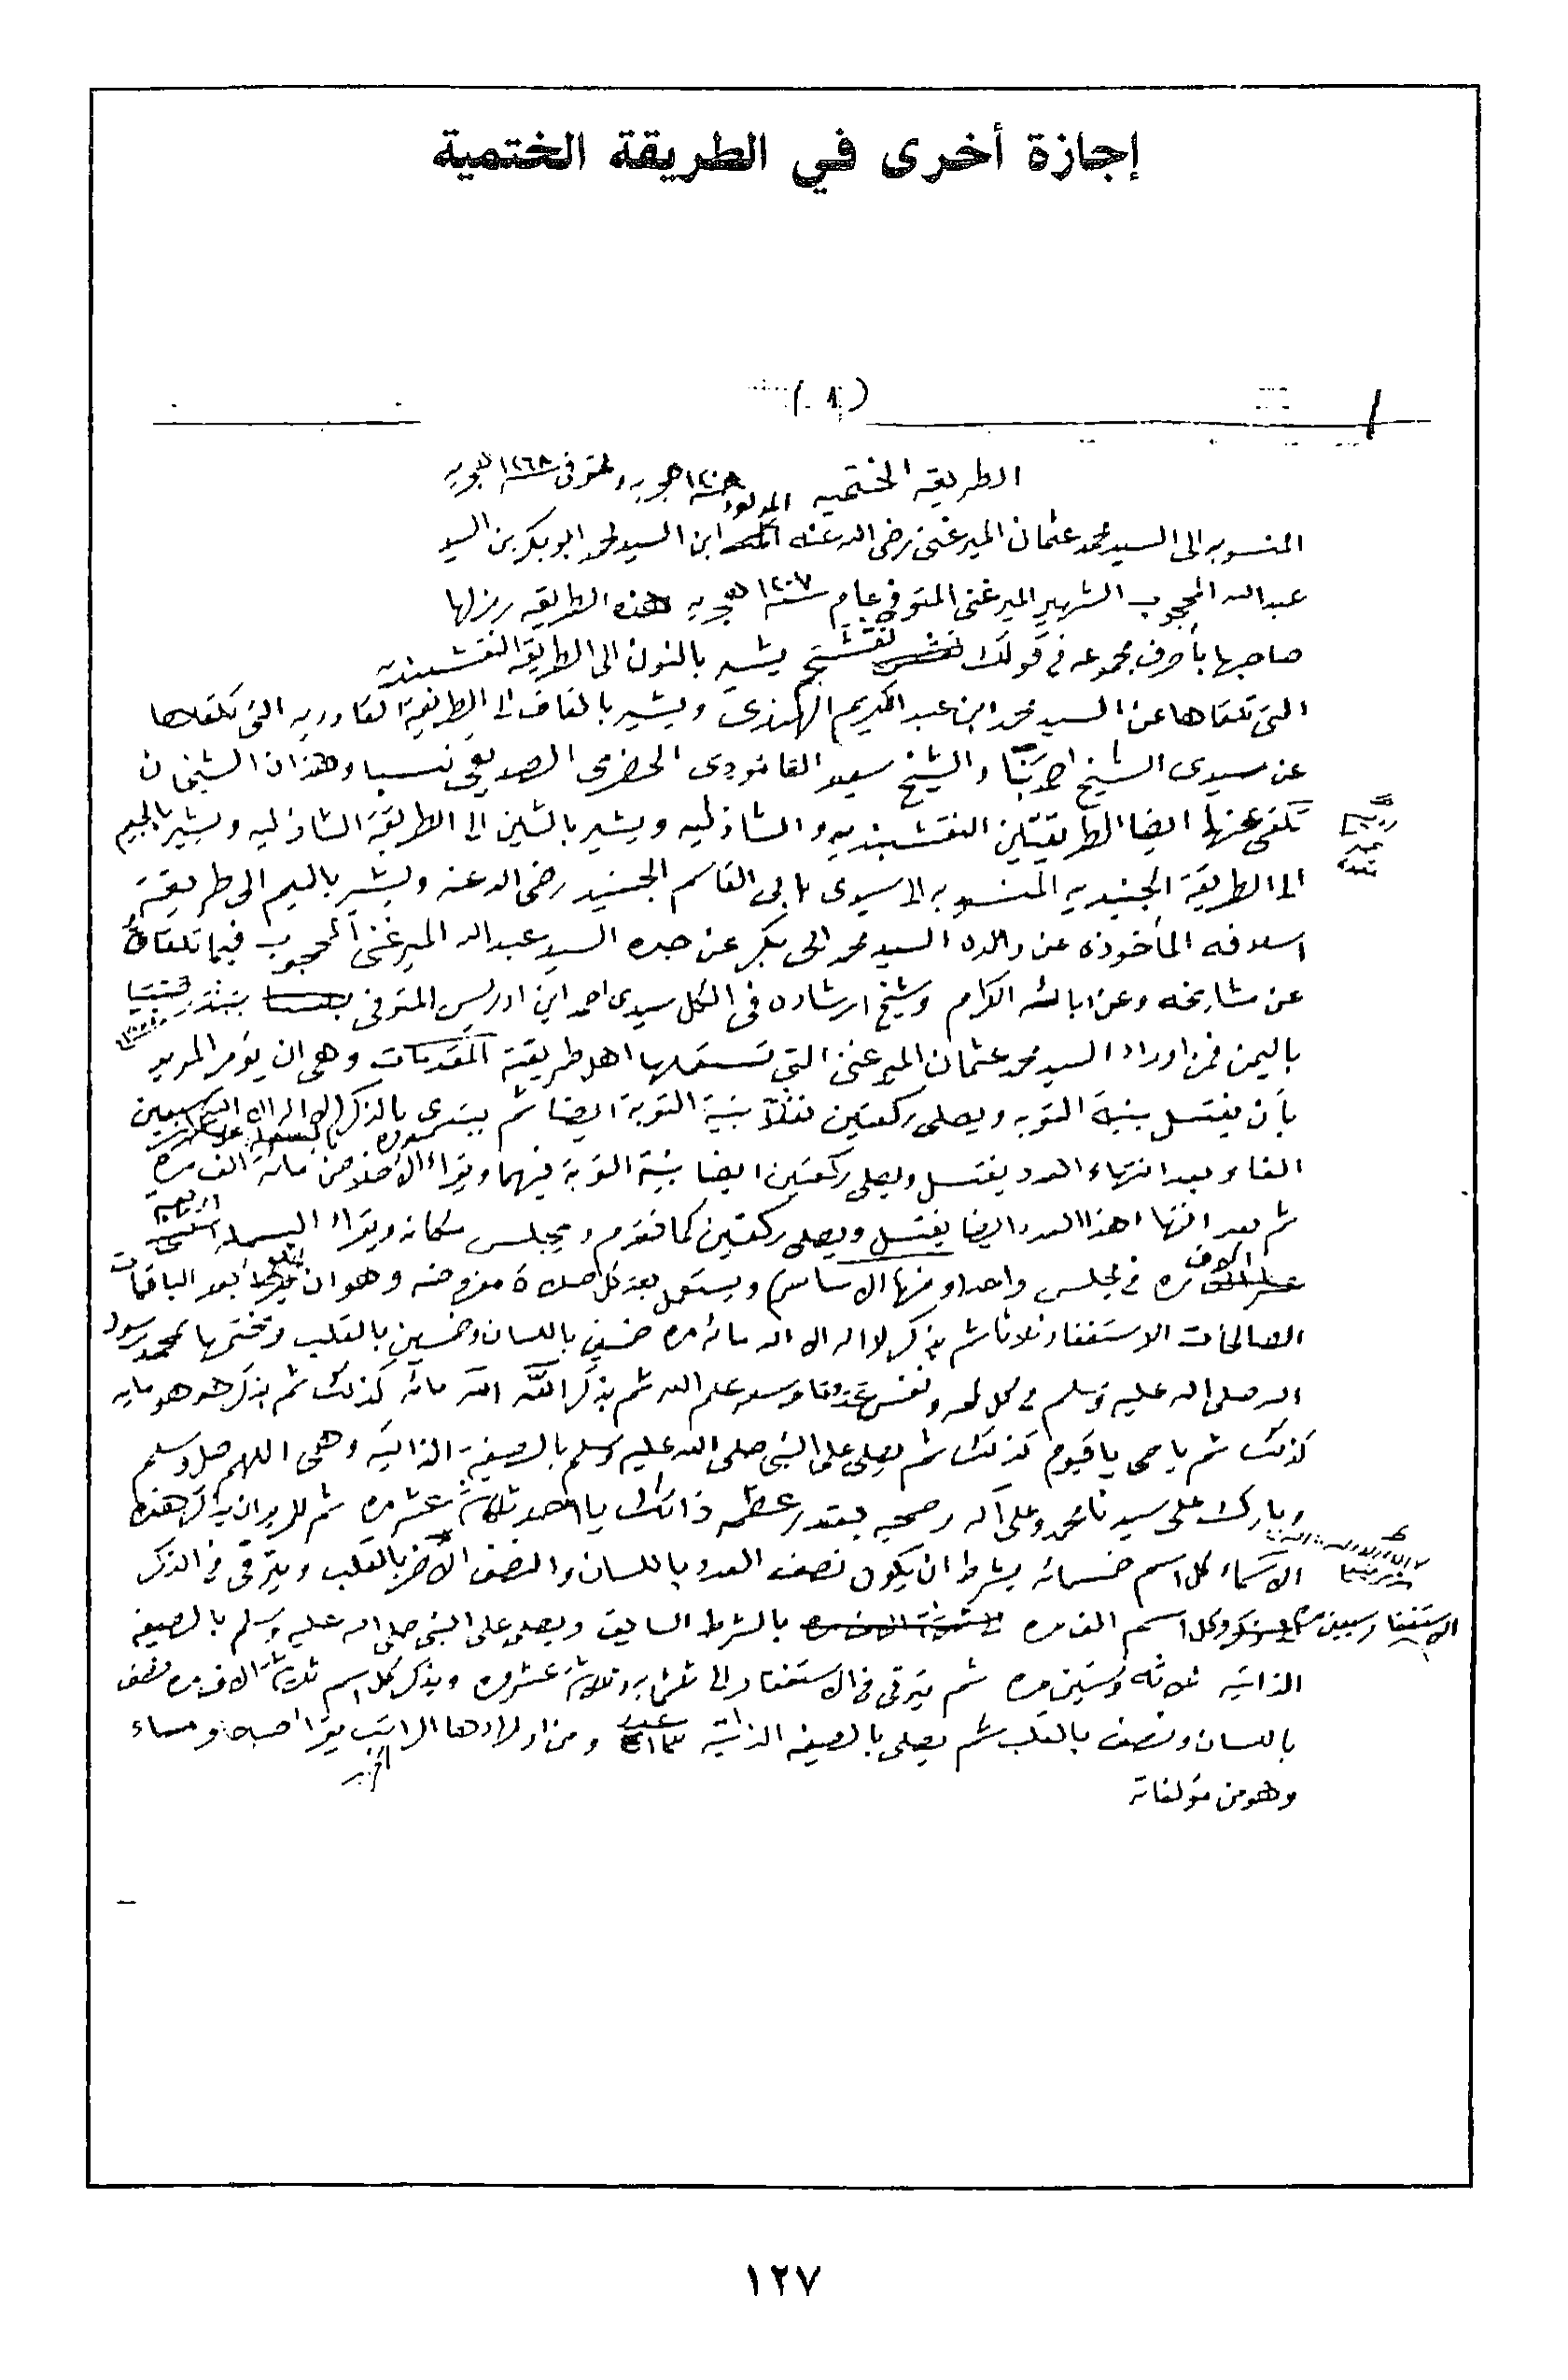 إجازة أخرى في الطريقة الختمية
(١)
الطريقه الختميه المولود سنة ١٢٠٨ هجريه والمتوفى سنة ١٢٦٨ هجريه
المنسوبه الى السيد محمد عثمان الميرغنى رضى الله عنه ابن السيد محمد ابوبكر بن السيد
عبدالله المحجوب الشهير الميرغنى المتوفى عام سنة ١٢٠٧ هجريه هذه الطريقه رمز لها
صاحبها بأحرف مجموعه فى قولك نقشجم يشير بالنون الى الطريقة النقشبندية
التى تلقاها عن السيد محمد ابن عبد الكريم الهندى ويشير بالقاف الى الطريقة القادريه التى تلقاها
عن سيدى الشيخ احمد بنّا والشيخ سعيد العامودى الحضرمى الصديقى نسبا وهذان الشيخان
تلقى عنهما ايضا الطريقتين النقشبنديه والشاذليه ويشير بالشين الى الطريقة الشاذليه ويشير بالجيم
الى الطريقة الجنيديه المنسوبه الى سيدى ابى القاسم الجنيد رضى الله عنه ويشير بالميم الى طريقة
اسلافه المأخوذه عن والده السيد محمد ابى بكر عن جده السيد عبدالله الميرغنى المحجوب فيما تلقاه
عن مشايخه وعن ابائه الكرام وشيخ ارشاده فى الكل سيدى احمد ابن ادريس المتوفى
باليمن فمن اوراد السيد محمد عثمان الميرغنى التى تستعملها اهل طريقته المقدمات وهى ان يؤمر المريد
بأن يغتسل بنية التوبه ويصلى ركعتين نفلاً بنية التوبة ايضا ثم يبتدى بالذكر لا اله الا الله سبعين
الفا وبعد انتهاء العدد يغتسل ويصلى ركعتين ايضا بنية التوبة فيهما ويقراء سورة الاخلاص مائة الف مره
ثم بعد انتهاء هذا العدد ايضا يغتسل ويصلى ركعتين كما تقدم ويجلس مكانه ويقراء البسملة
الاف مره فى مجلس واحد ومنها الاساس ويستعمل بعد كل صلاة مفروضه وهو ان بعد الباقيات
الصالحات الاستغفار ثلاثا ثم يذكر لا اله الا الله مائة مره خمسين باللسان وخمسين بالقلب ويختمها بمحمد رسول
الله صلى الله عليه وسلم فى كل لمحه ونفس عدد ما وسعه علم الله ثم يذكر الله الله مائة كذلك ثم يذكر هو هو مايه
كذلك ثم يا حى يا قيوم كذلك ثم يصلى على النبى صلى الله عليه وسلم بالصيغة الذاتيه وهى اللهم صل وسلم
وبارك على سيدنا محمد وعلى آله وصحبه بقدر عظمة ذاتك يا احد ثلاثة عشر مره ثم للمريد ان يذكر هذه
الاسماء كل اسم خمسمائه بشرط ان يكون نصف العدد باللسان والنصف الآخر بالقلب ويترقى فى الذكر
الاستغفار سبعين مره وكل اسم الف مره بالشرط السابق ويصلى على النبى صلى الله عليه وسلم بالصيغه
الذاتيه ثلاثه وستين مره ثم يترقى فى الاستغفار الى ثلثمايه وثلاثة عشر مره ويذكر كل اسم ثلاثة الاف مره نصف
باللسان ونصف بالقلب ثم يصلى بالصيغه الذاتية عدد ٣١٣ ومن اورادها الراتب يقرأ صباحا ومساء
وهو من مؤلفاته
١٢٧